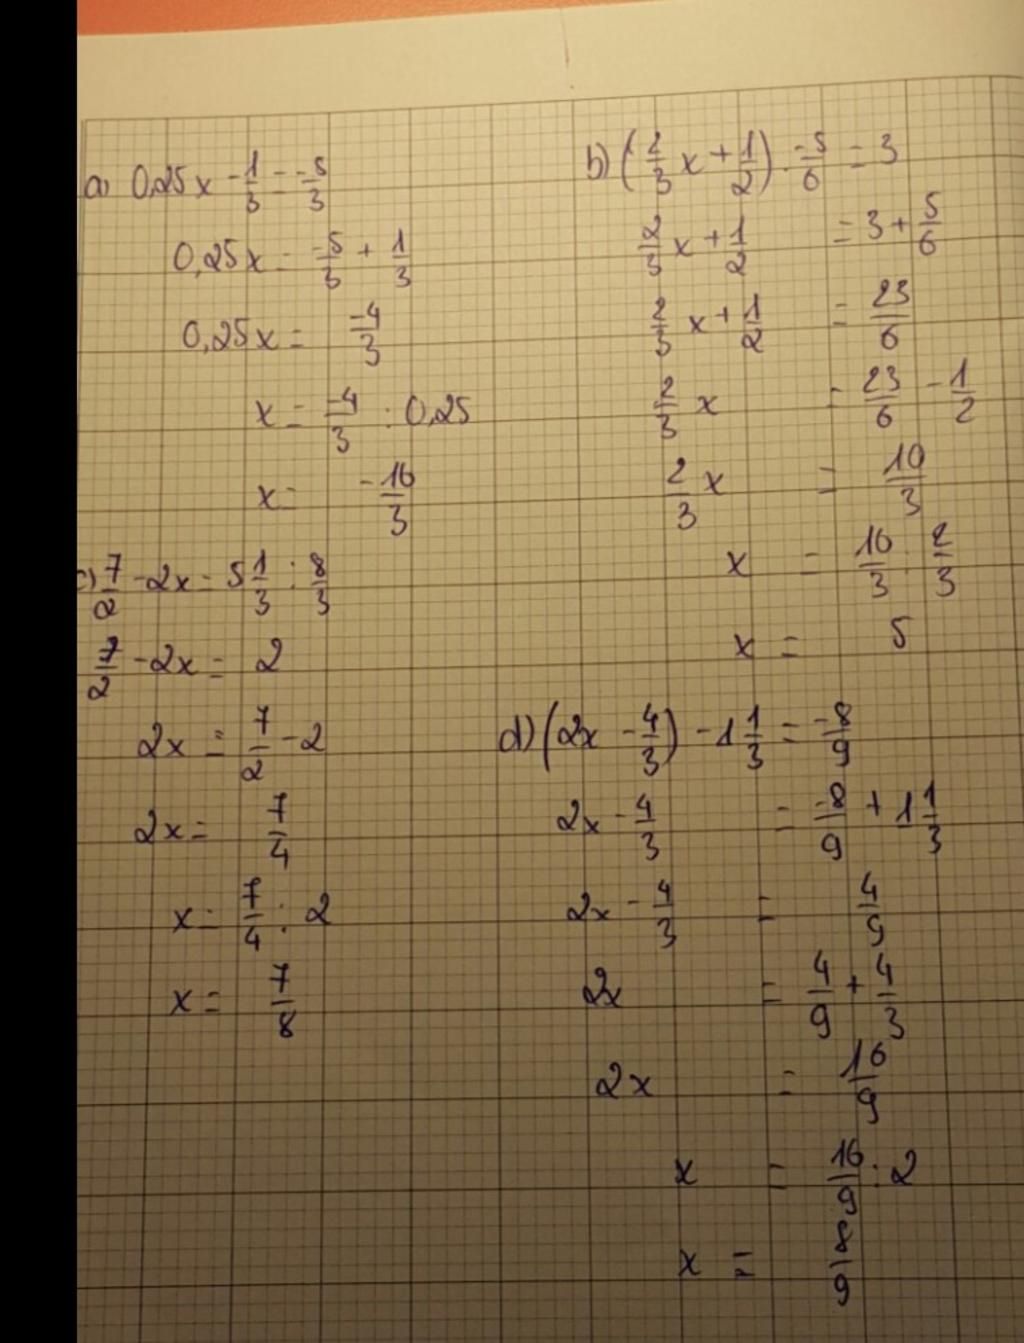 a) 0,25x - 1/3 = -5/3
0,25x = -5/3 + 1/3
0,25x = -4/3
x = -4/3 : 0,25
x = -16/3
b) (2/3 x + 1/2) · -5/6 = 3
2/3 x + 1/2 = 3 + 5/6
2/3 x + 1/2 = 23/6
2/3 x = 23/6 - 1/2
2/3 x = 10/3
x = 10/3 : 2/3
x = 5
c) 7/2 - 2x = 5 1/3 : 8/3
7/2 - 2x = 2
2x = 7/2 - 2
2x = 7/4
x = 7/4 : 2
x = 7/8
d) (2x - 4/3) - 1 1/3 = -8/9
2x - 4/3 = -8/9 + 1 1/3
2x - 4/3 = 4/9
2x = 4/9 + 4/3
2x = 16/9
x = 16/9 : 2
x = 8/9